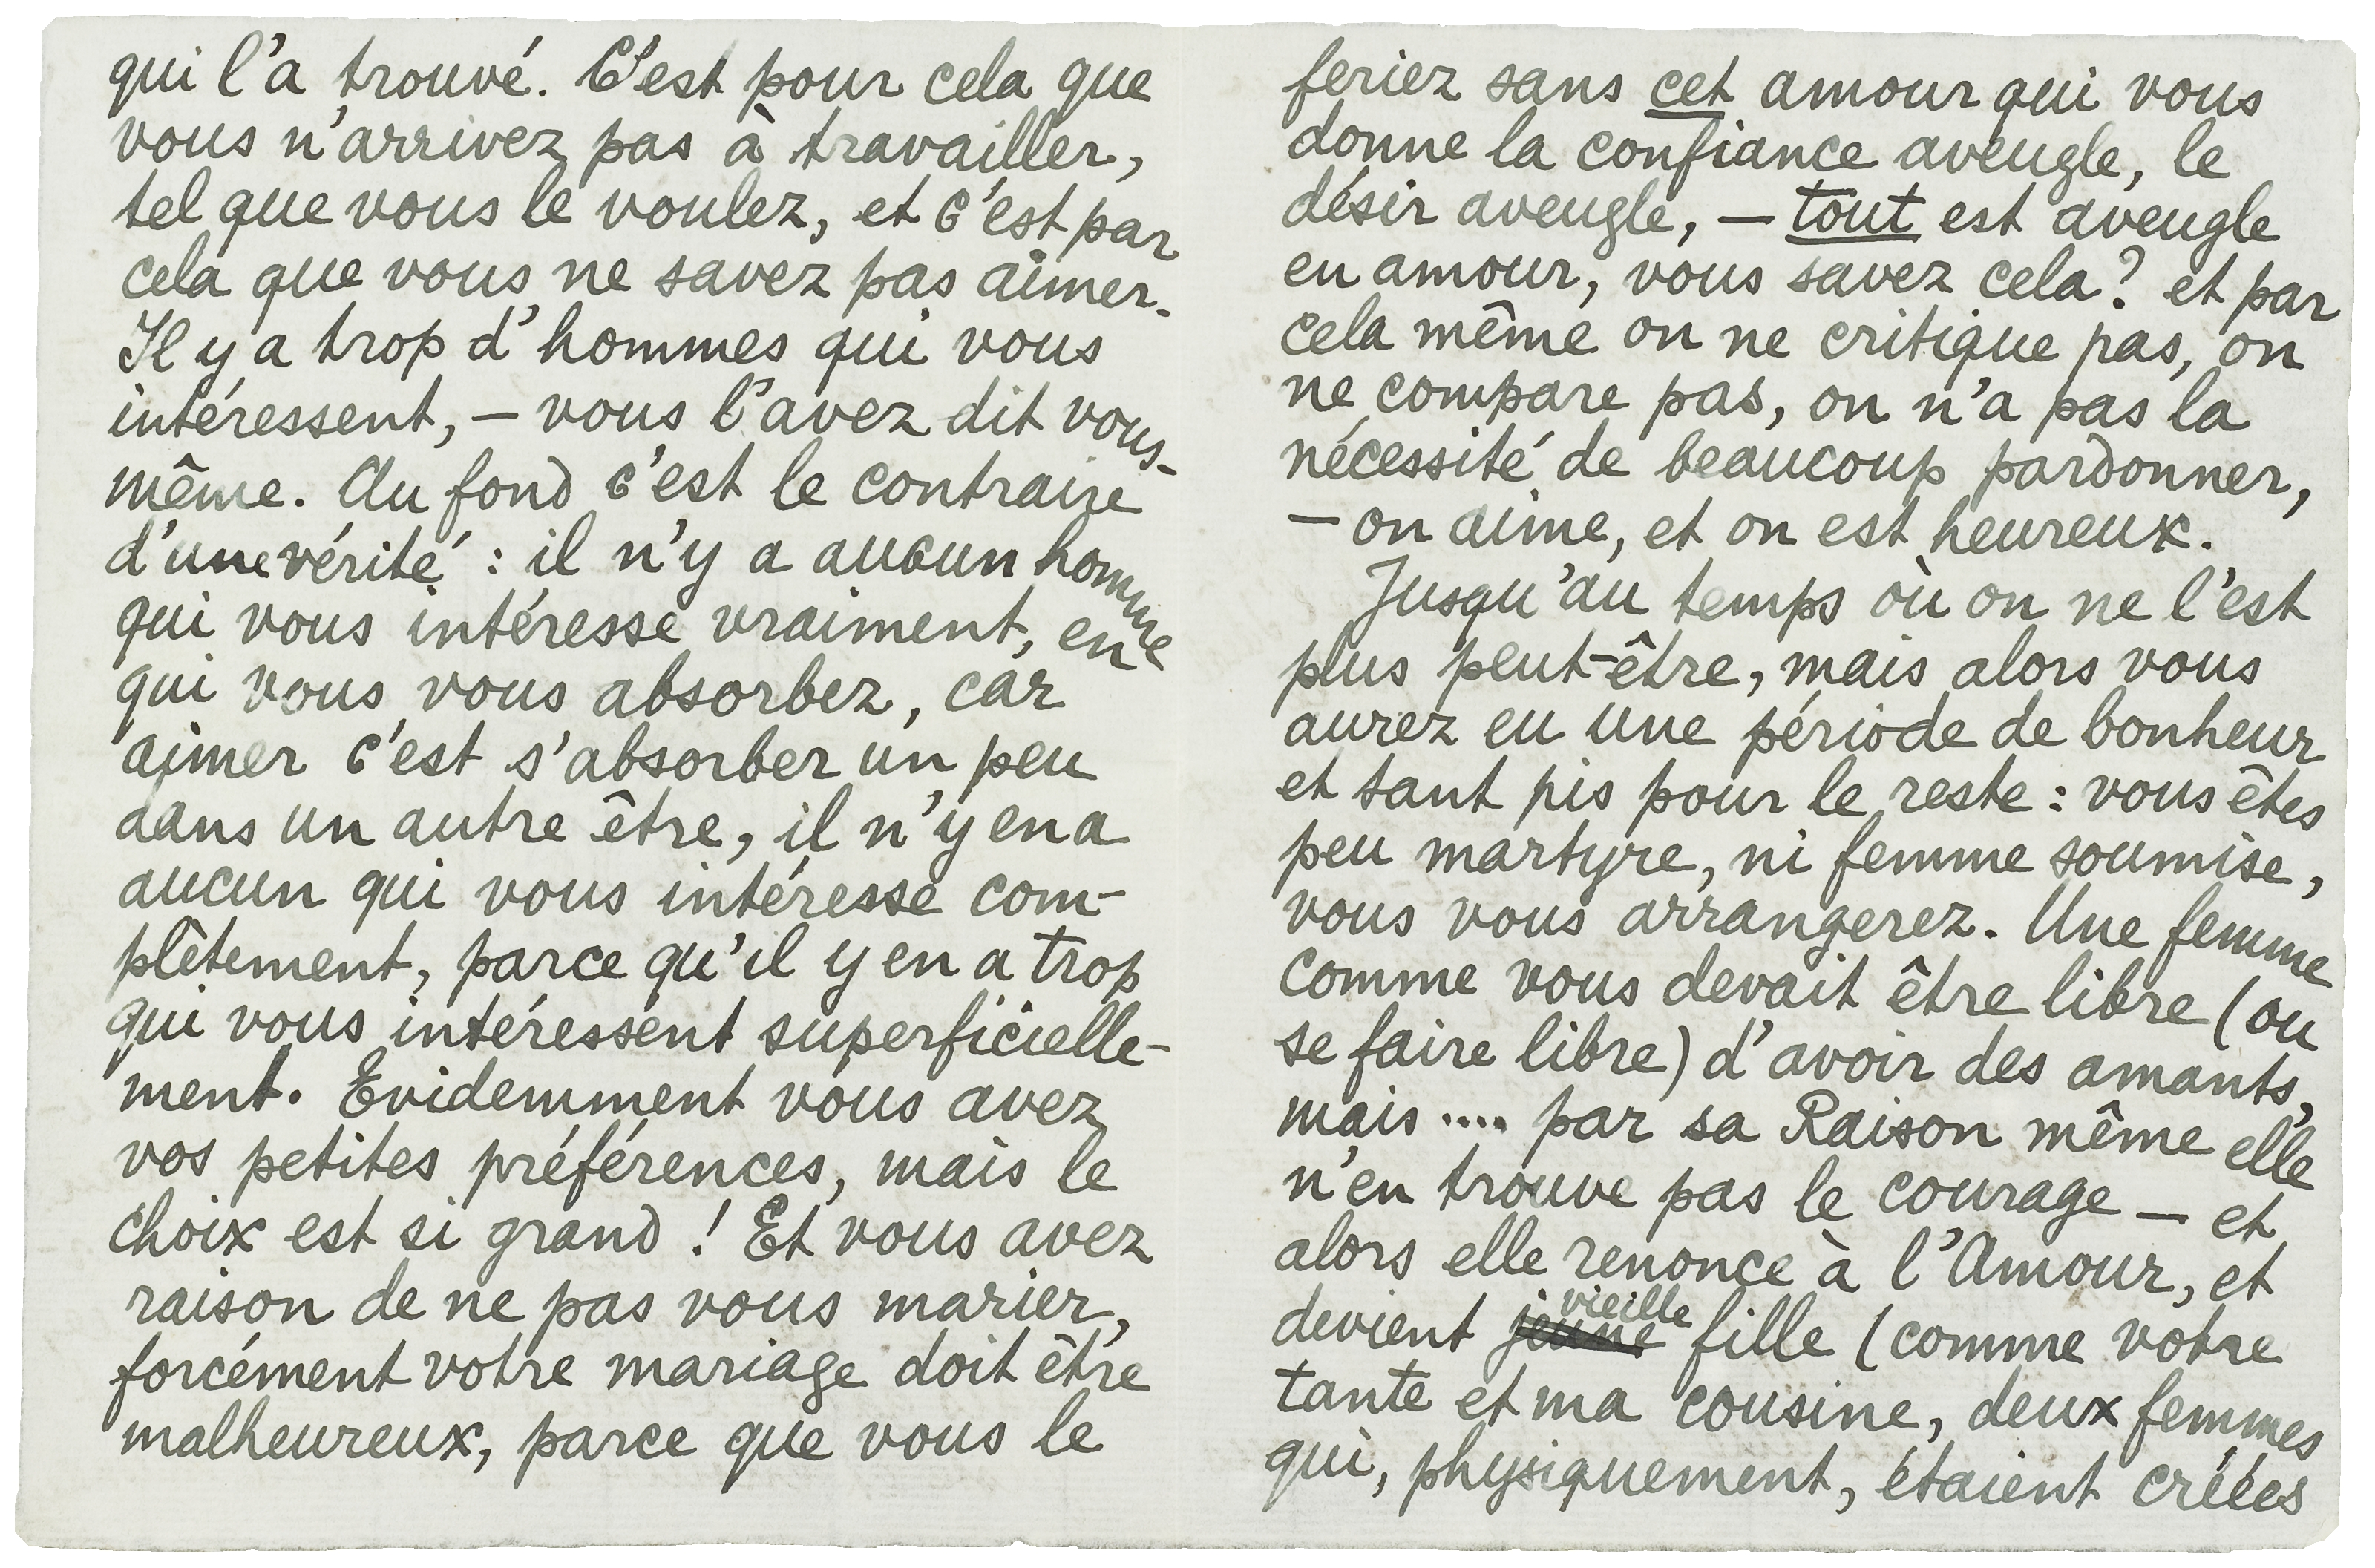 qui l'a trouvé. C'est pour cela que
vous n'arrivez pas à travailler,
tel que vous le voulez, et c'est par
cela que vous ne savez pas aimer.
Il y a trop d'hommes qui vous
intéressent, — vous l'avez dit vous-
même. Au fond c'est le contraire
d'une vérité : il n'y a aucun homme
qui vous intéresse vraiment, en
qui vous vous absorbez, car
aimer c'est s'absorber un peu
dans un autre être, il n'y en a
aucun qui vous intéresse com-
plètement, parce qu'il y en a trop
qui vous intéressent superficielle-
ment. Evidemment vous avez
vos petites préférences, mais le
choix est si grand ! Et vous avez
raison de ne pas vous marier,
forcément votre mariage doit être
malheureux, parce que vous le
feriez sans cet amour qui vous
donne la confiance aveugle, le
désir aveugle, — tout est aveugle
en amour, vous savez cela? et par
cela même on ne critique pas, on
ne compare pas, on n'a pas la
nécessité de beaucoup pardonner,
— on aime, et on est heureux.
Jusqu'au temps où on ne l'est
plus peut-être, mais alors vous
aurez eu une période de bonheur
et tant pis pour le reste : vous êtes
peu martyre, ni femme soumise,
vous vous arrangerez. Une femme
comme vous devait être libre (ou
se faire libre) d'avoir des amants,
mais .... par sa Raison même elle
n'en trouve pas le courage — et
alors elle renonce à l'Amour, et
devient jeune vieille fille (comme votre
tante et ma cousine, deux femmes
qui, physiquement, étaient créées